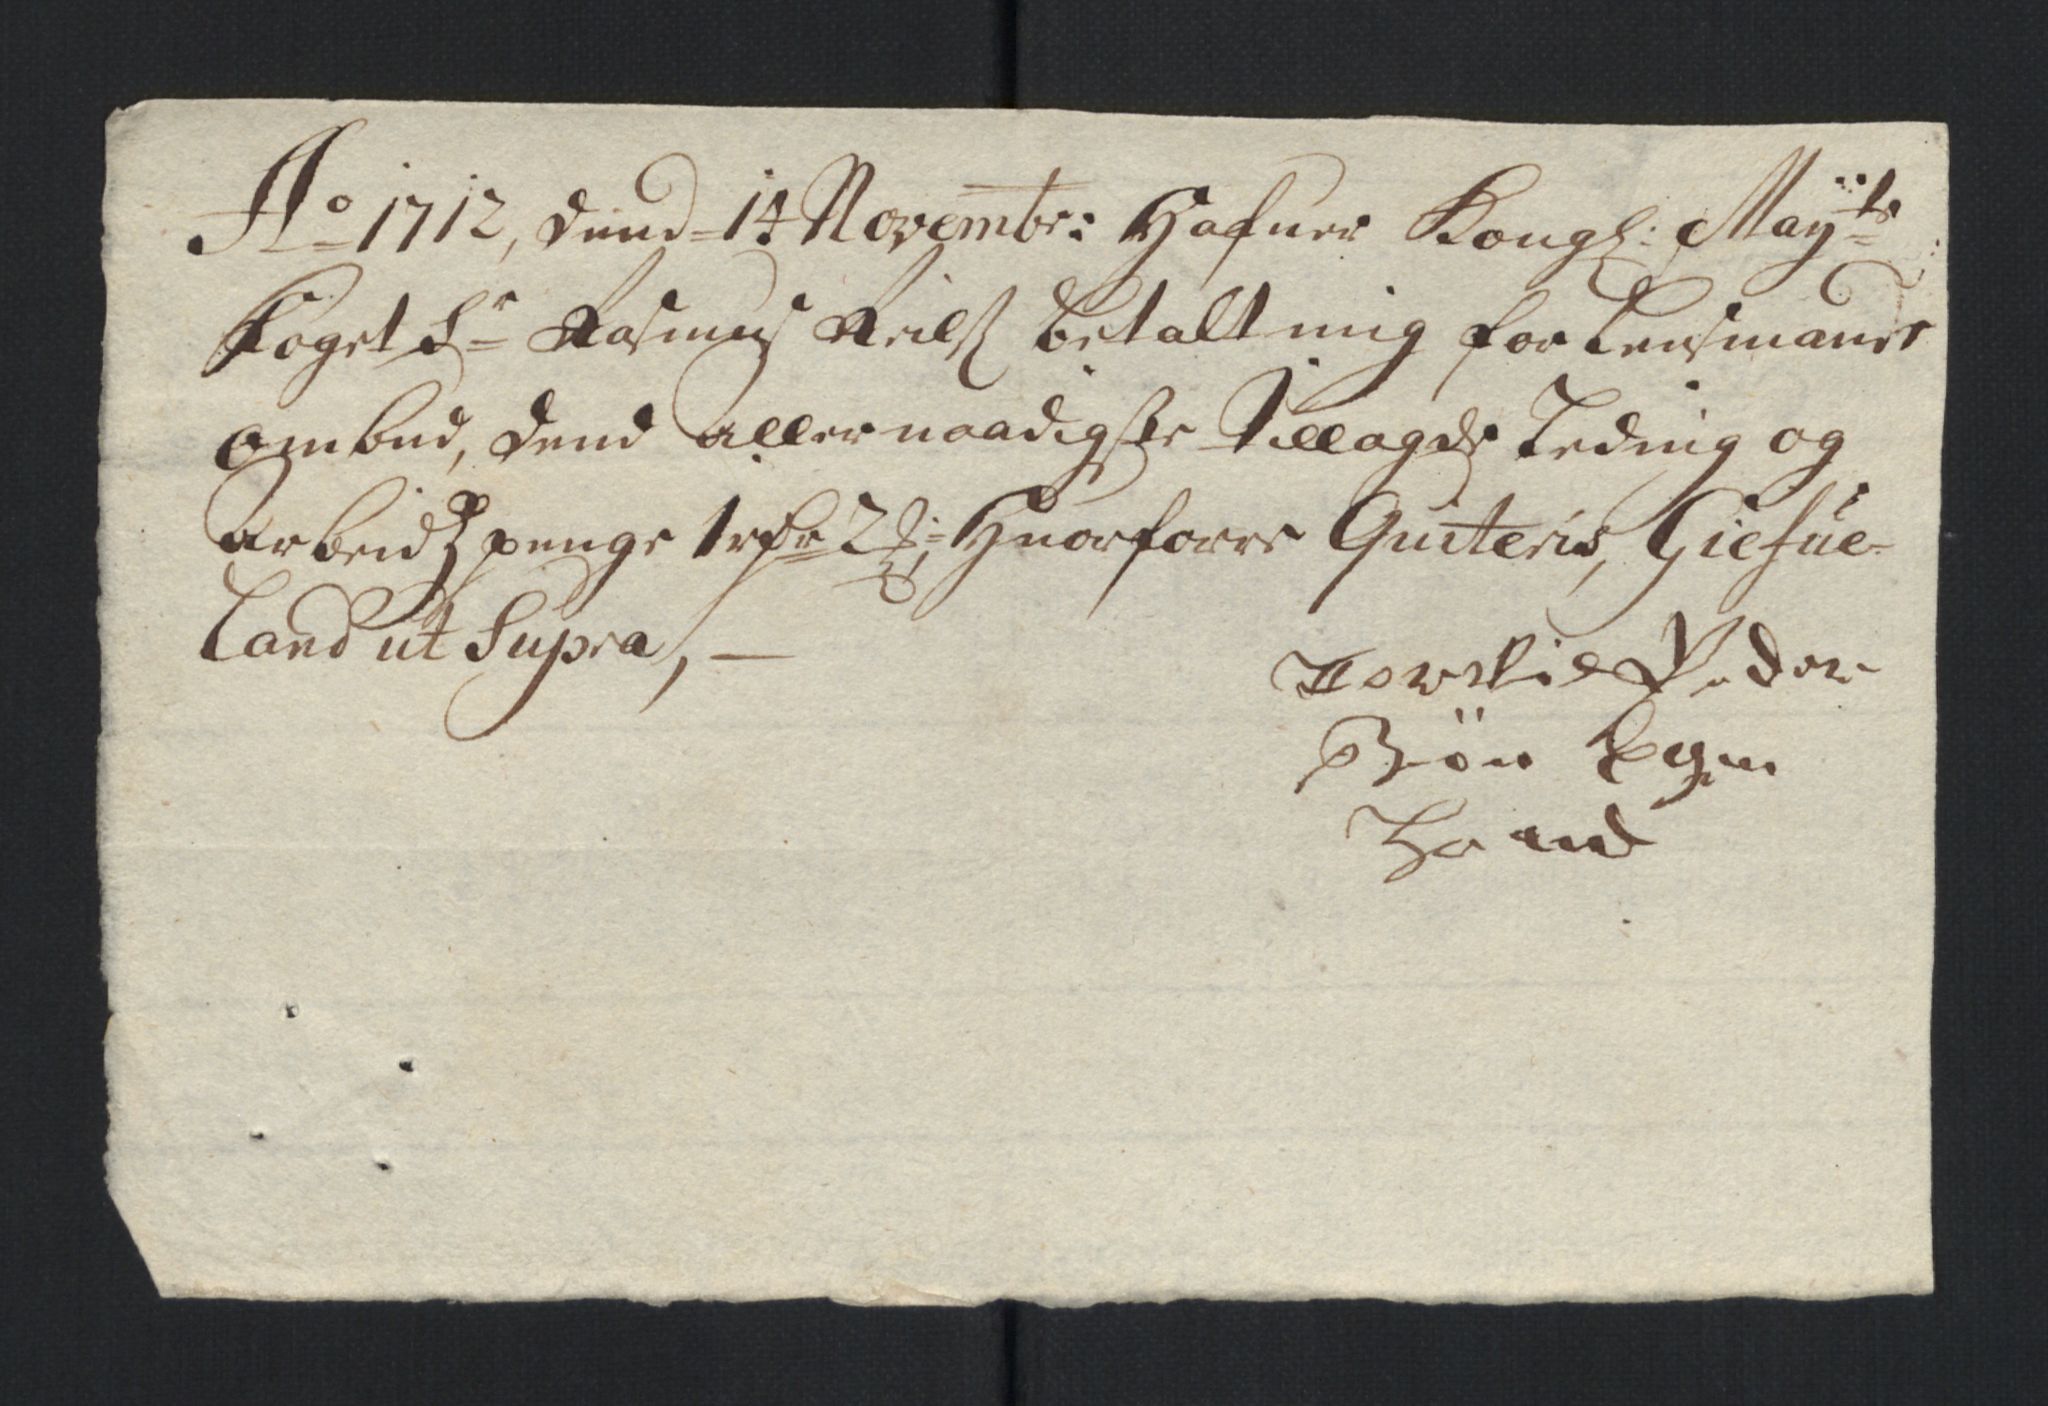 Ao 1712, dend 14 Novembr: Hafuer Kongl: Mayts
Foget Sr Rasmus Neilß betalt mig for Lensmands
ombud, dend allernaadigste Tillagde Leding og
arbeidß penge 1 rdr 2 ß: Huorforre Qviteris, Giesue-
land ut Supra, —
Peder
Biön Egen
Hand